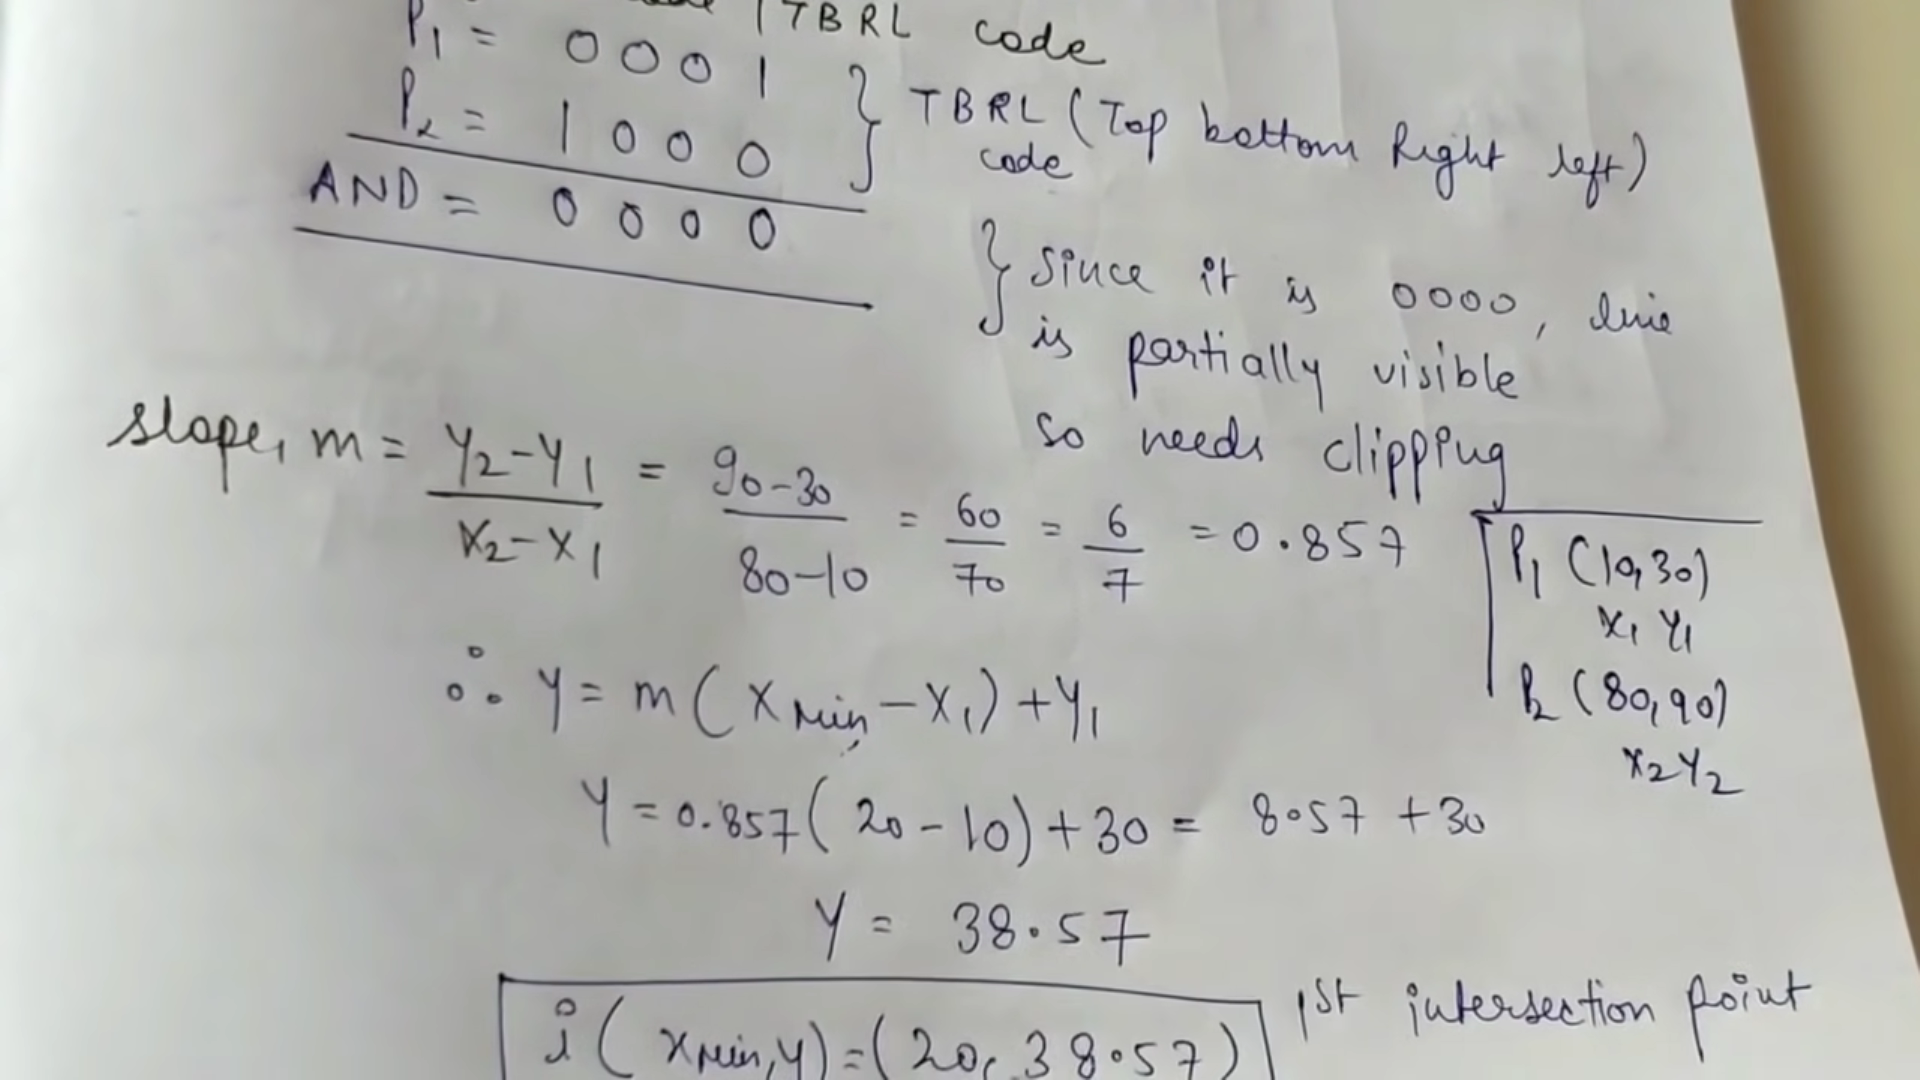 TBRL code
P1 = 0001
P2 = 1000
} TBRL (Top bottom Right left)
code
AND = 0000
} Since it is 0000, line
is partially visible
so needs clipping
slope, m = Y2-Y1 / X2-X1 = 90-30 / 80-10 = 60/70 = 6/7 = 0.857
P1 (10,30)
X1 Y1
P2 (80,90)
X2 Y2
∴ Y = m(Xmin - X1) + Y1
Y = 0.857(20-10)+30 = 8.57 + 30
Y = 38.57
i(Xmin,Y)=(20,38.57) 1st intersection point